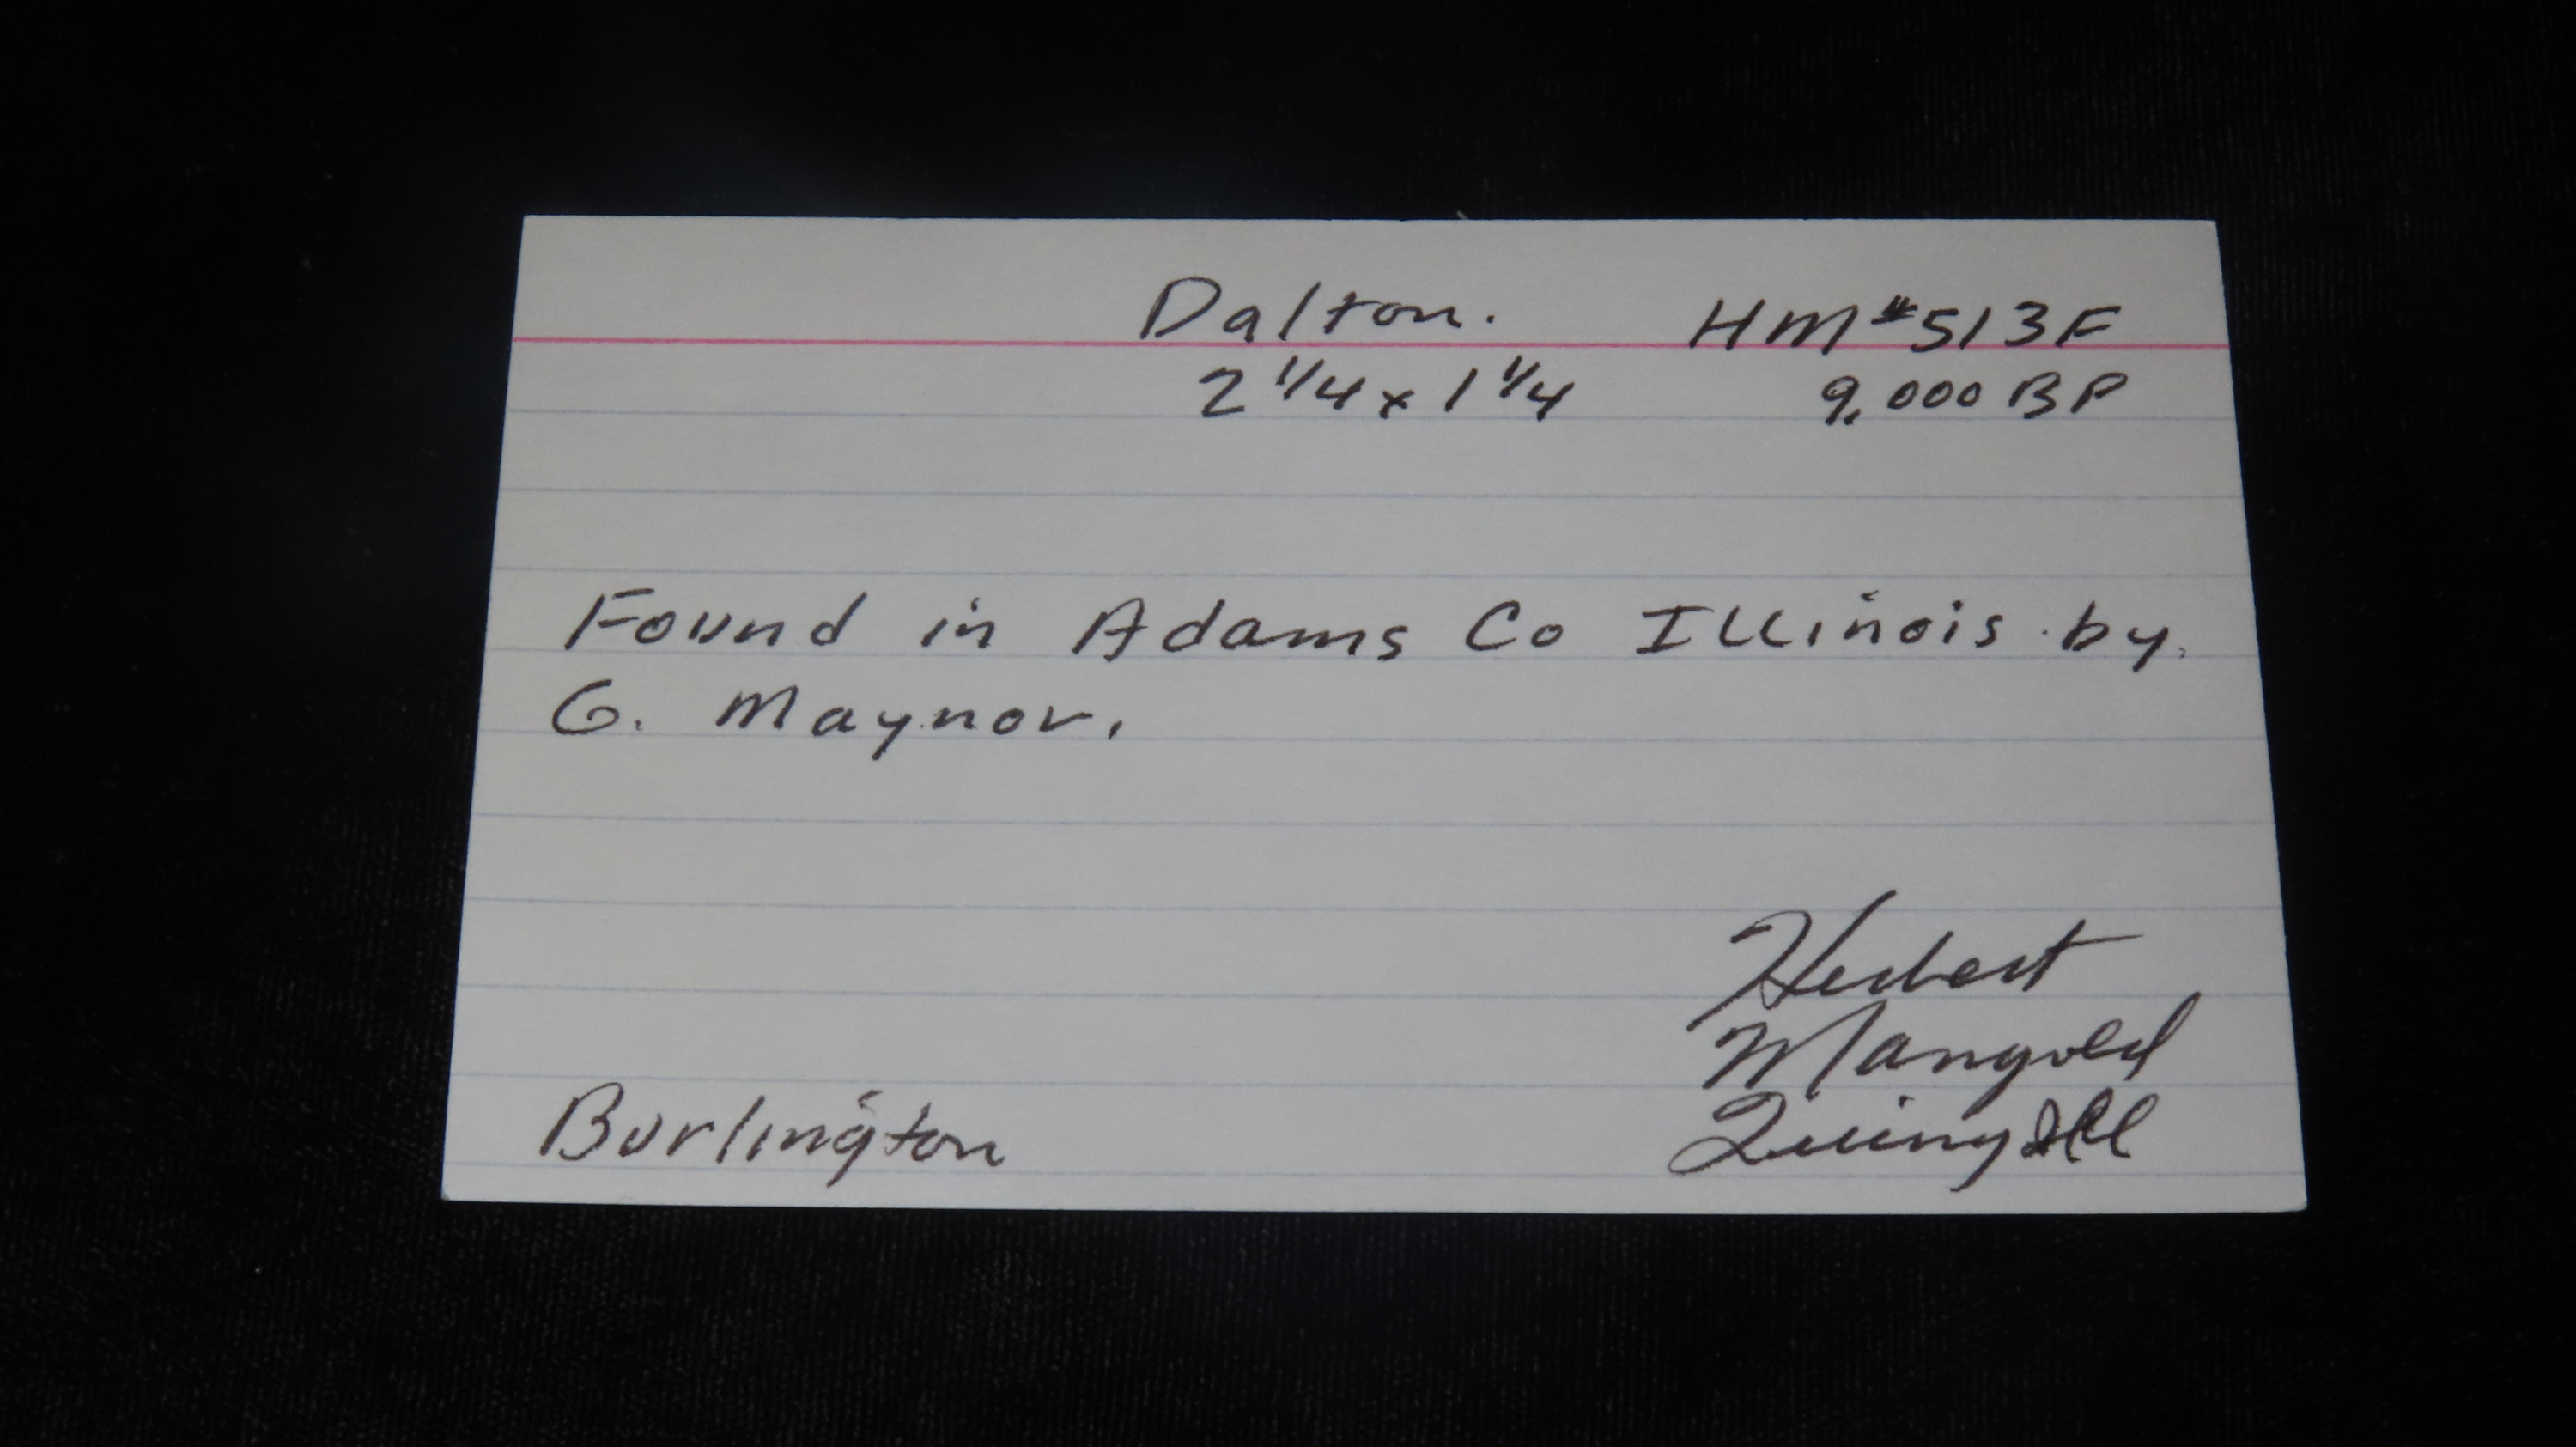 Dalton. HM#513F
2 1/4 x 1 1/4 9,000 BP
Found in Adams Co Illinois by
G. Maynor.
Herbert
Mangold
Burlington Quincy Ill